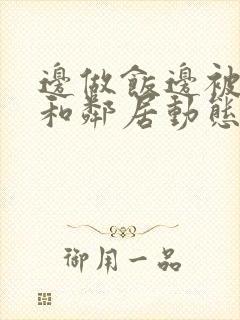 邊做飯邊被
和鄰居動態
御用一品